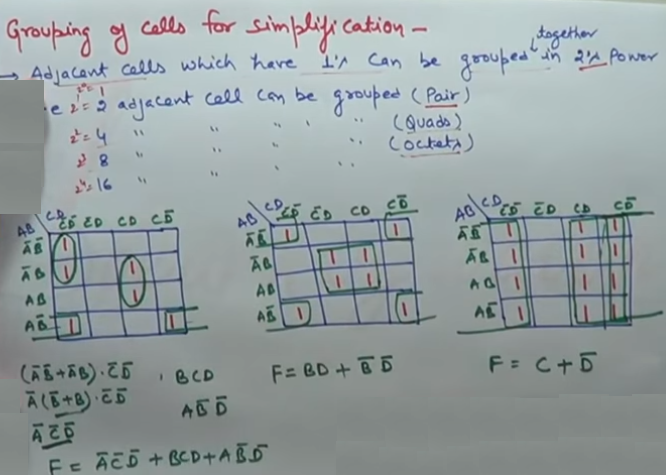 Grouping of cells for simplification -
together
→ Adjacent cells which have 1's can be grouped in 2's Power
2⁰ = 1
e 2¹ = 2 adjacent cell can be grouped (Pair)
2² = 4 " " " " (Quads)
2³ 8 " " " " (Octets)
2⁴ = 16 " " "
AB CD C̅D̅ C̅D CD CD̅
A̅B̅ 1
A̅B 1 1
AB 1
AB̅ 1 1
AB CD C̅D̅ C̅D CD CD̅
A̅B̅ 1 1
A̅B 1 1
AB 1 1
AB̅ 1 1
AB CD C̅D̅ C̅D CD CD̅
A̅B̅ 1 1 1
A̅B 1 1 1
AB 1 1 1
AB̅ 1 1 1
(A̅B̅+A̅B)·C̅D̅ , BCD
A̅(B̅+B)·C̅D̅ AB̅D̅
A̅C̅D̅
F = A̅C̅D̅ + BCD + AB̅D̅
F = BD + B̅D̅
F = C + D̅